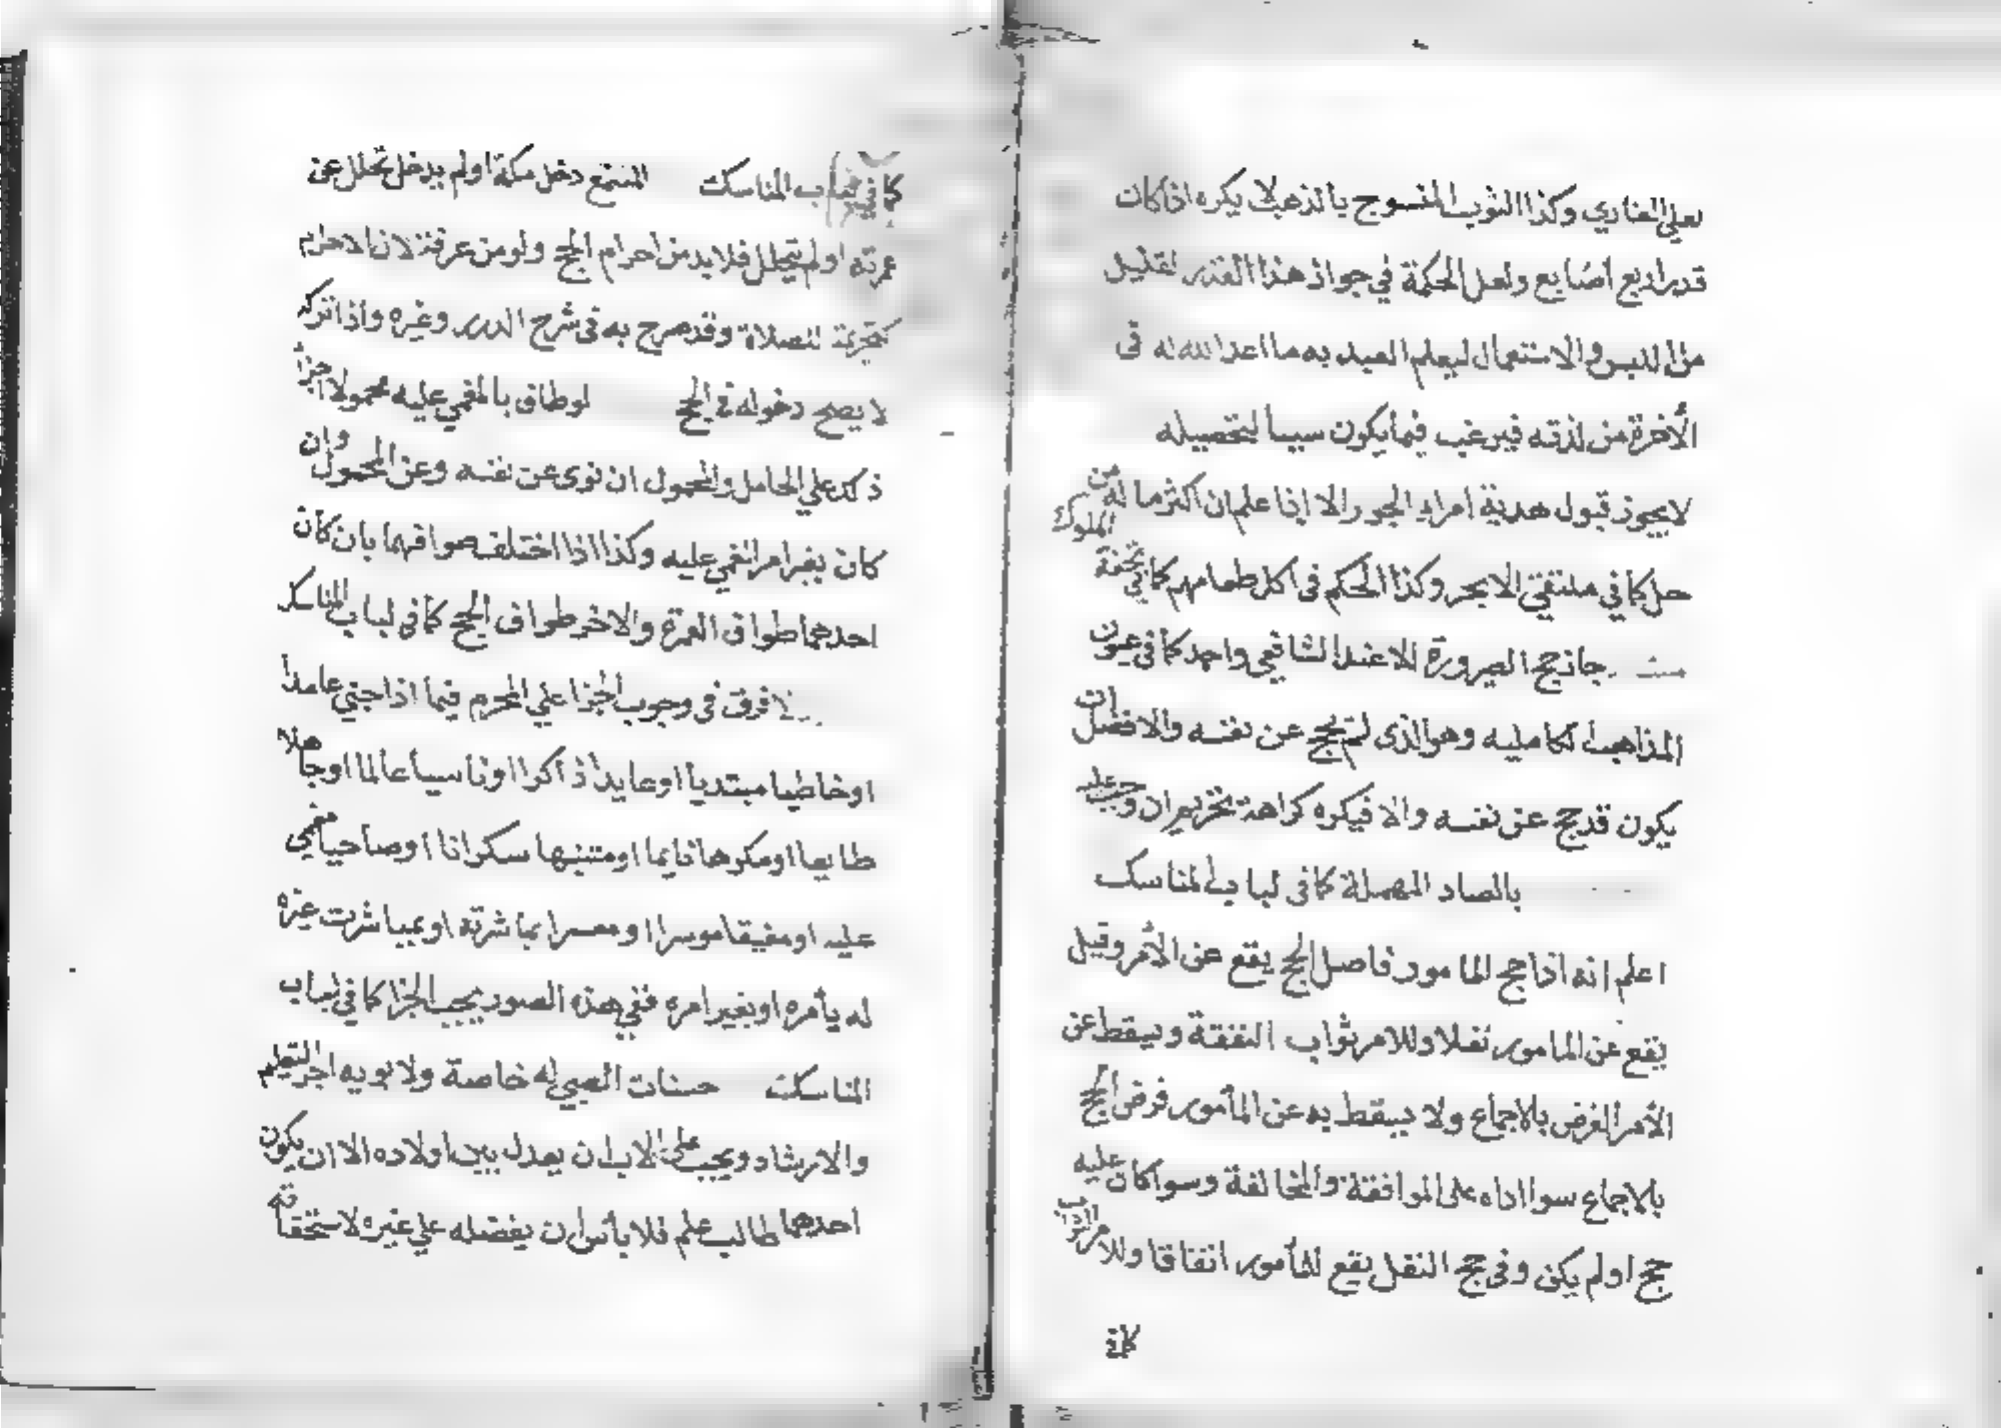 على الغازي وكذا الثوب المنسوج بالذهب لا يكره اذا كان
قدر اربع اصابع ولعل الحكمة في جواز هذا القدر لقليل
من اللبس والاستعمال ليعلم العبد به ما اعد الله له في
الأخرة من لذته فيرغب فيما يكون سببا لتحصيله
لا يجوز قبول هدية امراء الجور الا اذا علم ان اكثر ماله من
الملوك
حل كما في ملتقي الابحر وكذا الحكم في اكل طعامهم كما في تحفة
جاز حج الصرورة الا عند الشافعي واحمد كما في عيون
المذاهب لكامليه وهو الذى لم يحج عن نفسه والافضل ان
يكون قد حج عن نفسه والا فيكره كراهة تحريم ان وجب عليه
بالصاد المهملة كما في لباب المناسك
اعلم انه اذا حج المامور فاصل الحج يقع عن الأمر وقيل
يقع عن المامور نفلا وللامر ثواب النفقة ويسقط عن
الأمر الفرض بالاجماع ولا يسقط به عن المأمور فرض الحج
بالاجماع سوا اداه على الموافقة والمخالفة وسوا كان عليه
حج او لم يكن وفي حج النفل يقع للمأمور اتفاقا وللامر الثواب
كما في
كما في لباب المناسك المتمتع دخل مكة او لم يدخل تحلل عن
عمرته او لم يتحلل فلا بد من احرام الحج ولو من عرفة لان الاحرام
كتحريمة للصلاة وقد صرح به في شرح الدرر وغيره واذا تركه
لا يصح دخوله في الحج لو طاف بالمغمي عليه محمولا اجزأ
ذلك على الحامل والمحمول ان نوى عن نفسه وعن المحمول وان
كان بغير امر المغمي عليه وكذا اذا اختلف صوافهما بان كان
احدهما طواف العمرة والاخر طواف الحج كما في لباب المناسك
لا فرق في وجوب الجزا علي المحرم فيما اذا جني عامدا
او خاطيا مبتديا او عايدا ذاكرا او ناسيا عالما او جاهلا
طايعا او مكرها نايما او متنبها سكرانا او صاحيا مغمي
عليه او مفيقا موسرا او معسرا بمباشرته او بمباشرت غيره
له بأمره او بغير امره ففي هذه الصور يجب الجزا كما في لباب
المناسك حسنات الصبي له خاصة ولابويه اجر التعليم
والارشاد ويجب على الاب ان يعدل بين اولاده الا ان يكون
احدهما طالب علم فلا بأس ان يفضله علي غيره لاستحقاقه